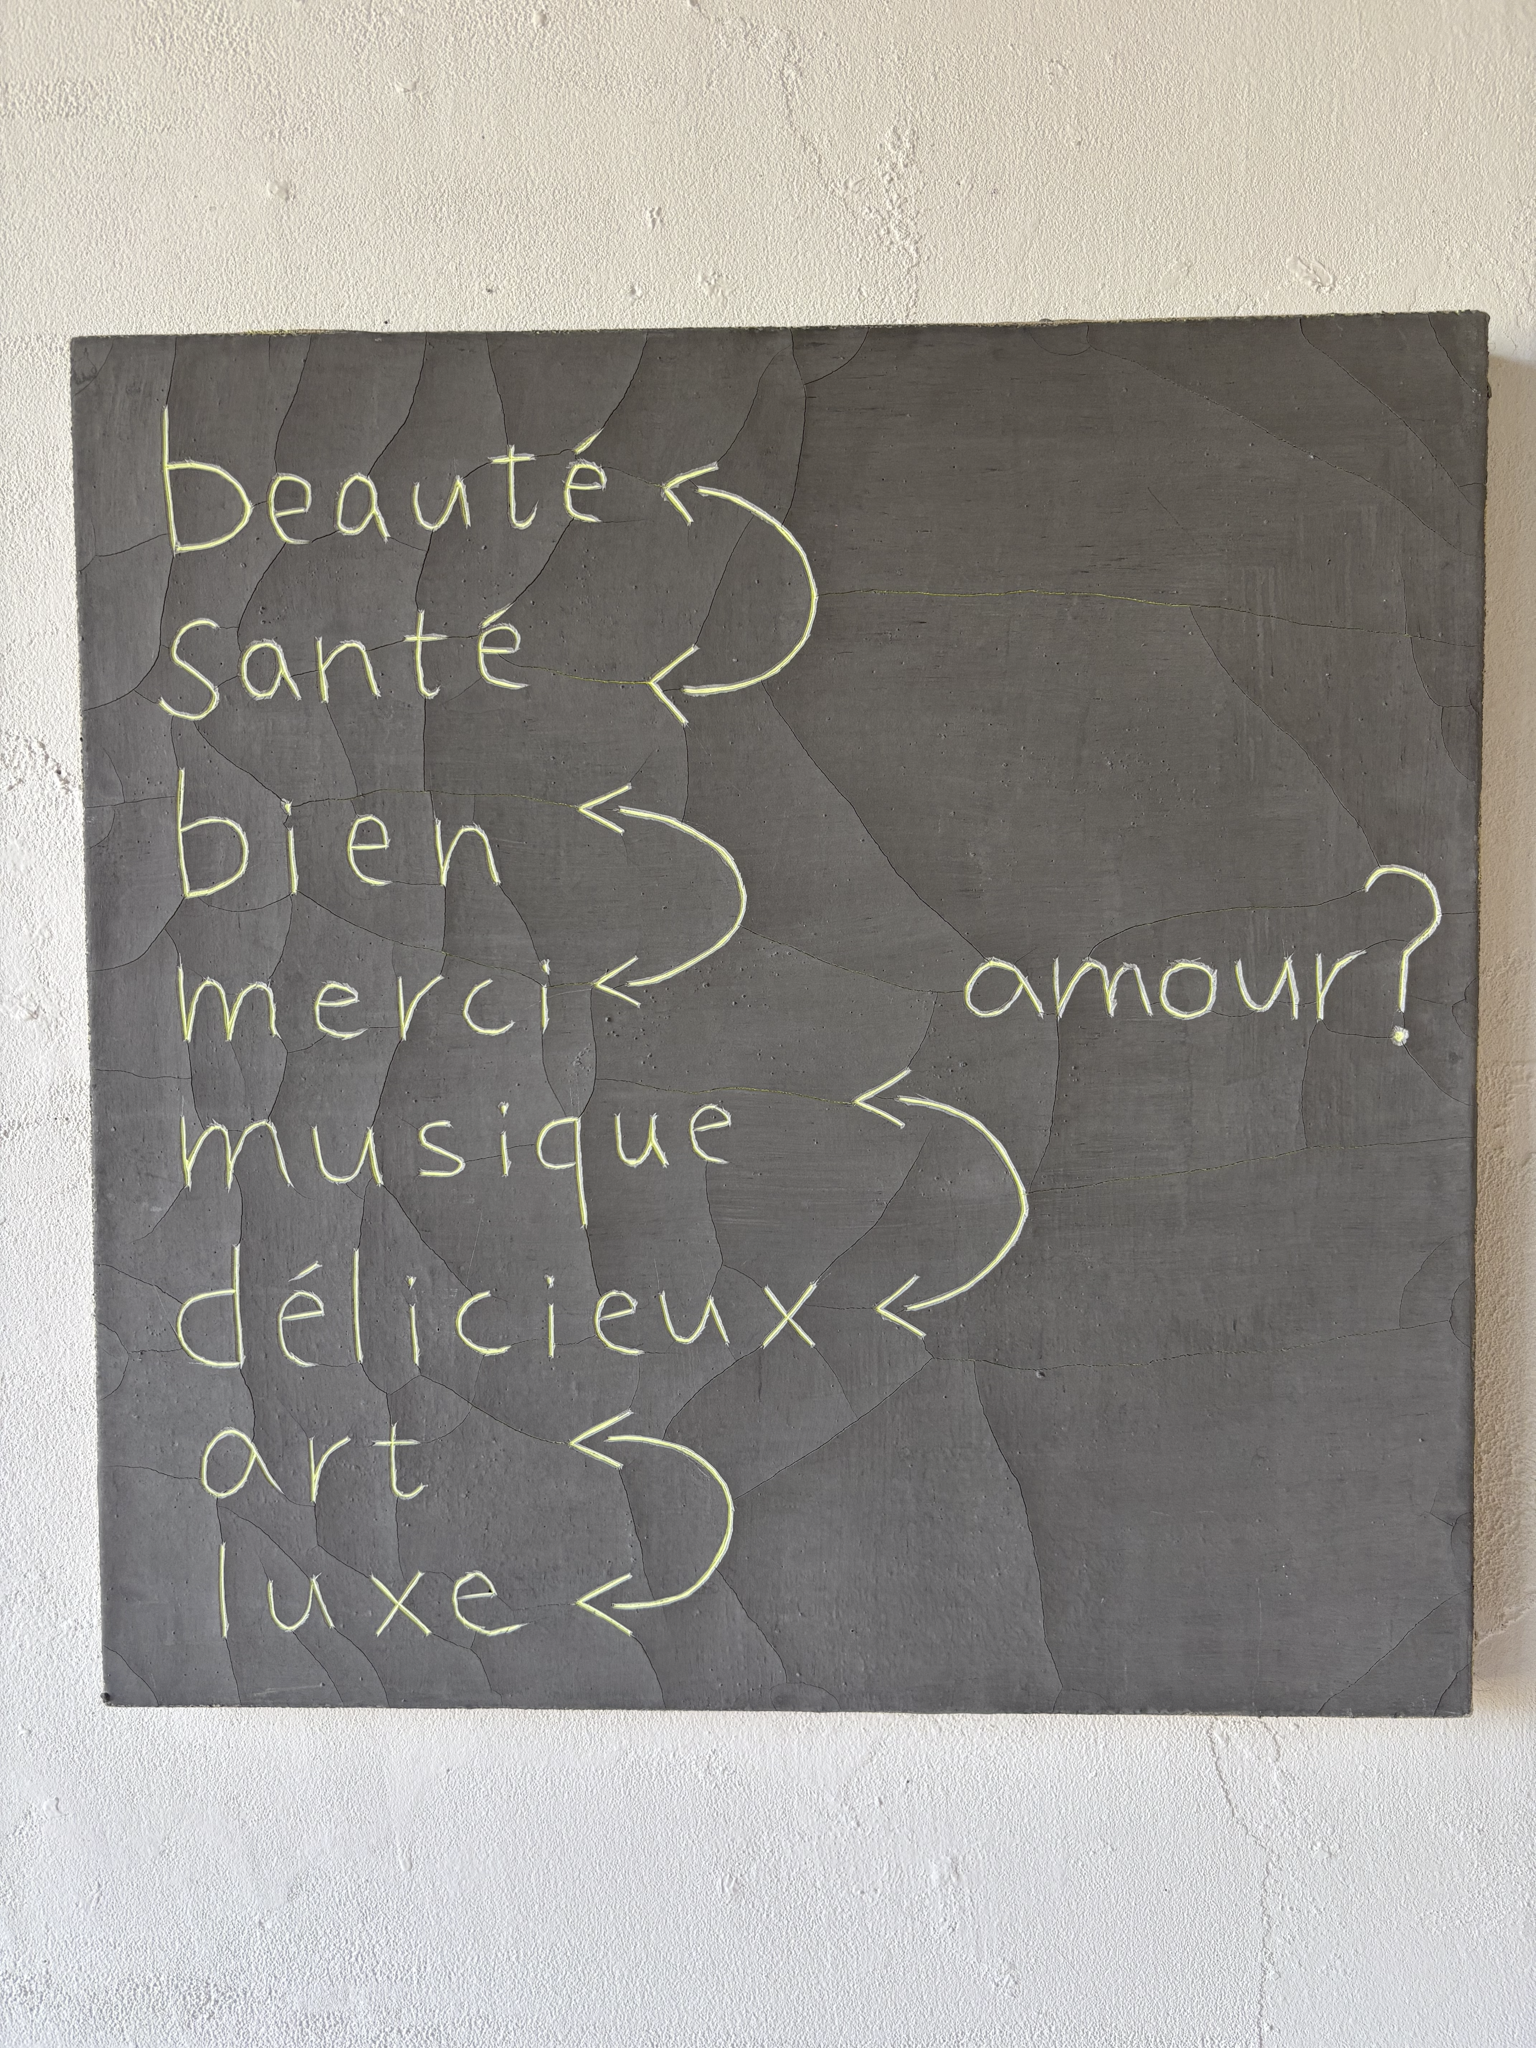 beauté
santé
bien
merci
amour?
musique
délicieux
art
luxe